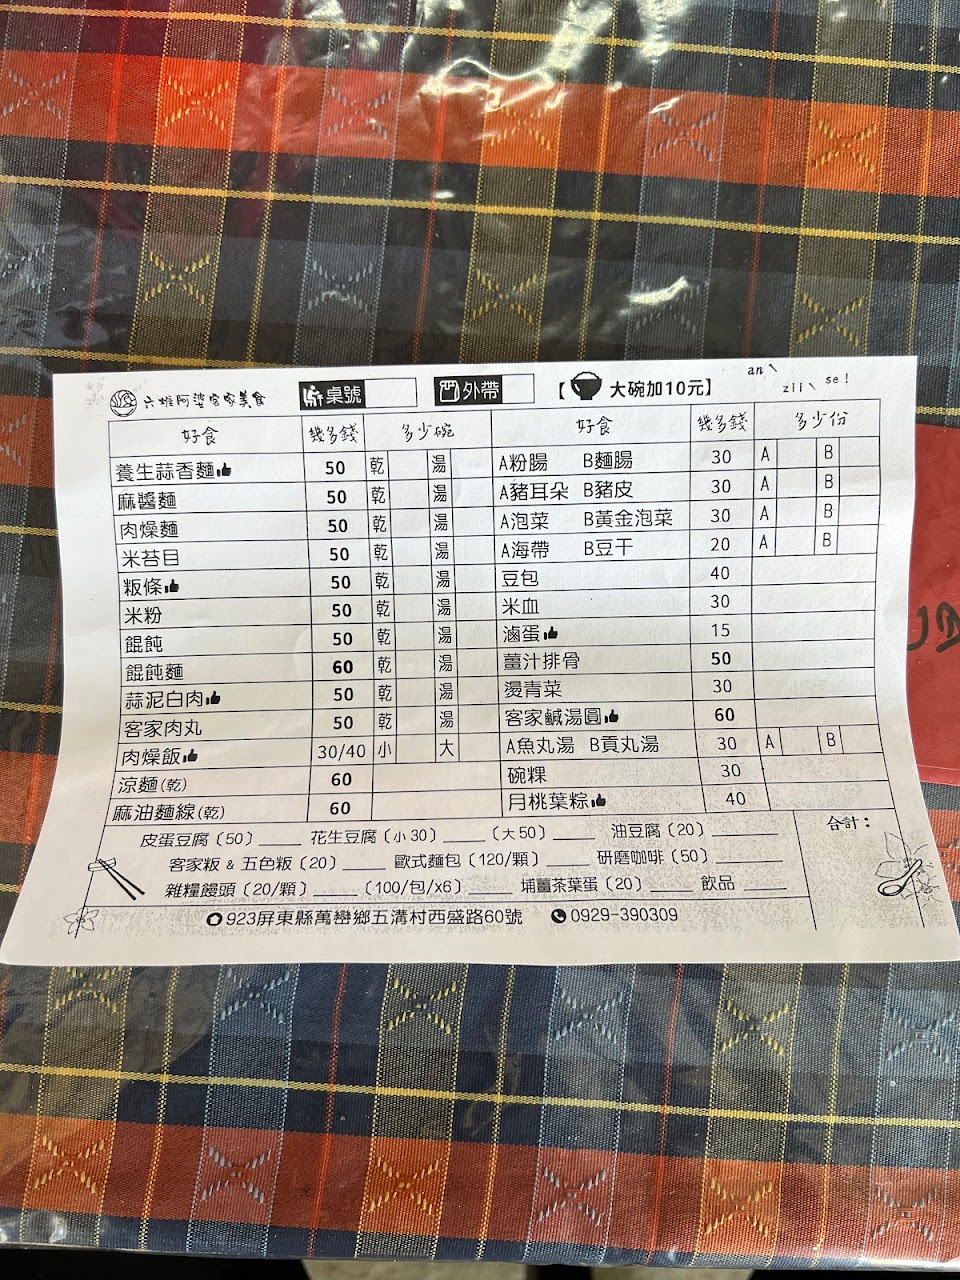 六堆阿婆客家美食 桌號 外帶 【大碗加10元】 an ziiˋ se！
好食 幾多錢 多少碗 好食 幾多錢 多少份
養生蒜香麵 50 乾 湯 A粉腸 B麵腸 30 A B
麻醬麵 50 乾 湯 A豬耳朵 B豬皮 30 A B
肉燥麵 50 乾 湯 A泡菜 B黃金泡菜 30 A B
米苔目 50 乾 湯 A海帶 B豆干 20 A B
粄條 50 乾 湯 豆包 40
米粉 50 乾 湯 米血 30
餛飩 50 乾 湯 滷蛋 15
餛飩麵 60 乾 湯 薑汁排骨 50
蒜泥白肉 50 乾 湯 燙青菜 30
客家肉丸 50 乾 湯 客家鹹湯圓 60
肉燥飯 30/40 小 大 A魚丸湯 B貢丸湯 30 A B
涼麵(乾) 60 碗粿 30
麻油麵線(乾) 60 月桃葉粽 40
皮蛋豆腐（50）____ 花生豆腐（小30）____ （大50）____ 油豆腐（20）______ 合計：
客家粄 & 五色粄（20）___ 歐式麵包（120/顆）____ 研磨咖啡（50）______
雜糧饅頭（20/顆）____（100/包/x6）____ 埔薑茶葉蛋（20）____ 飲品____
923屏東縣萬巒鄉五溝村西盛路60號 0929-390309